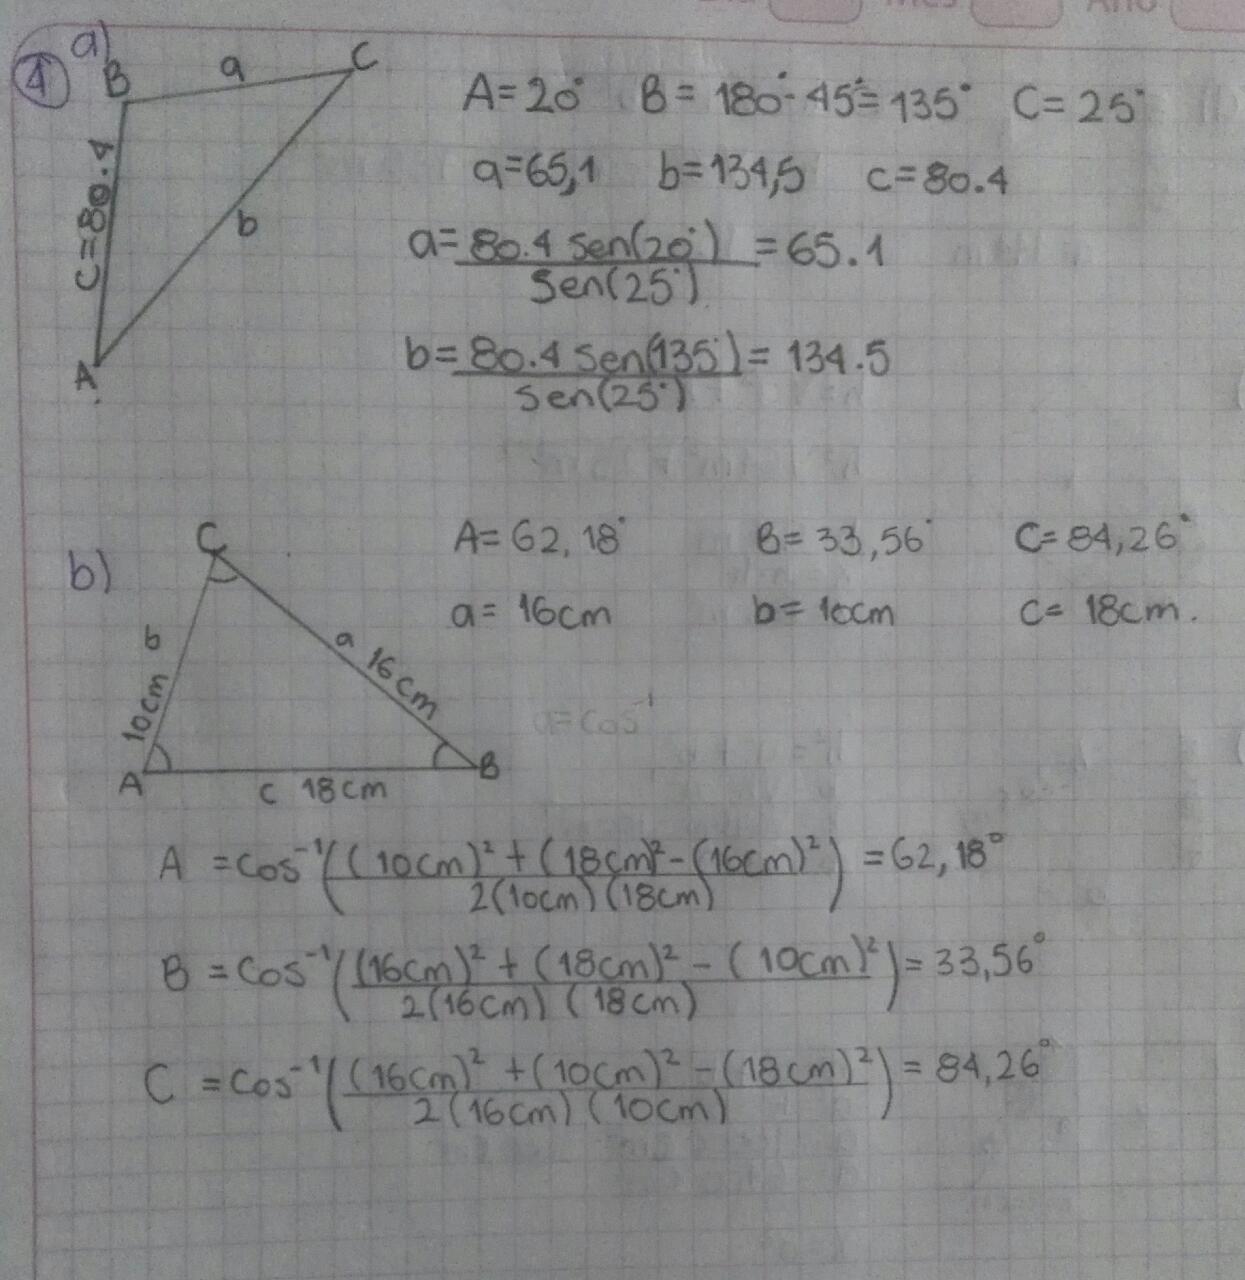 Mes Año
1 a)
B a C
A=20° B= 180°-45°=135° C=25°
a=65,1 b=134,5 c=80.4
c=80.4
b
a= 80.4 sen(20°) = 65.1
sen(25°)
b= 80.4 sen(135°) = 134.5
sen(25°)
A
b)
C
A=62,18° B=33,56° C=84,26°
a= 16cm b= 10cm c= 18cm.
b a
10cm 16cm
a=cos⁻¹
A B
c 18cm
A =cos⁻¹((10cm)²+(18cm)²-(16cm)²) =62,18°
2(10cm)(18cm)
B =cos⁻¹((16cm)²+(18cm)²-(10cm)²)=33,56°
2(16cm)(18cm)
C =cos⁻¹((16cm)²+(10cm)²-(18cm)²)=84,26°
2(16cm)(10cm)